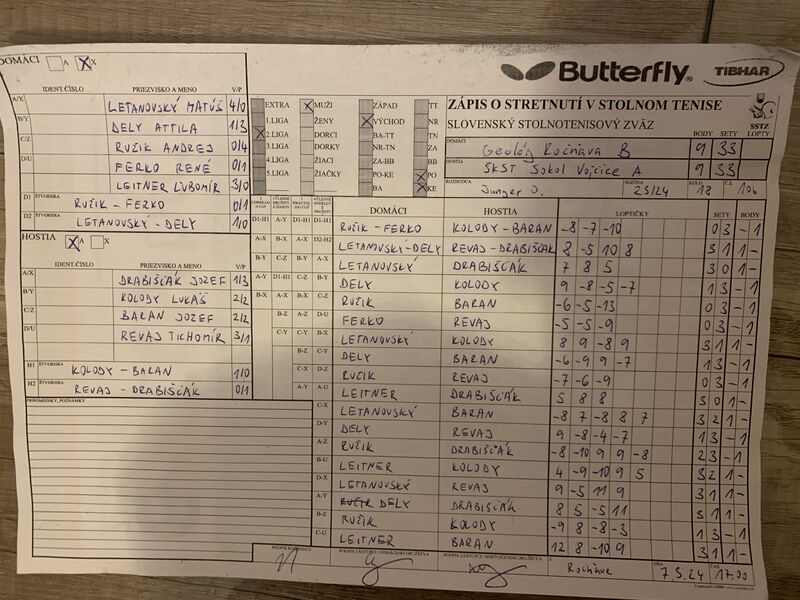 DOMÁCI A X
Butterfly
TIBHAR
IDENT.ČÍSLO PRIEZVISKO A MENO V/P
A/X LETANOVSKÝ MATÚŠ 4/0
B/Y DELY ATTILA 1/3
C/Z RUŽIK ANDREJ 0/4
D/U FERKO RENÉ 0/1
LEITNER ĽUBOMÍR 3/0
D1 ŠTVORHRA RUŽIK - FERKO 0/1
D2 LETANOVSKÝ - DELY 1/0
HOSTIA A X
IDENT.ČÍSLO PRIEZVISKO A MENO V/P
A/X DRABIŠČÁK JOZEF 1/3
B/Y KOLODY LUKÁŠ 2/2
C/Z BARAN JOZEF 2/2
D/U REVAJ TICHOMÍR 3/1
H1 ŠTVORHRA KOLODY - BARAN 1/0
H2 ŠTVORHRA REVAJ - DRABIŠČÁK 0/1
PRIPOMIENKY, POZNÁMKY
EXTRA MUŽI ZÁPAD TT
1.LIGA ŽENY VÝCHOD NR
2.LIGA DORCI BA-TT TN
3.LIGA DORKY NR-TN ZA
4.LIGA ŽIACI ZA-BB BB
5.LIGA ŽIAČKY PO-KE PO
BA KE
ZÁPIS O STRETNUTÍ V STOLNOM TENISE
SLOVENSKÝ STOLNOTENISOVÝ ZVÄZ
SSTZ
BODY SETY LOPTY
DOMÁCI Geológ Rožňava B 9 33
HOSTIA ŠKST Sokol Vojčice A 9 33
ROZHODCA Junger J. SEZÓNA 23/24 KOLO 18 Č.Z. 106
DOMÁCI HOSTIA LOPTIČKY SETY BODY
D1-H1 RUŽIK - FERKO KOLODY - BARAN -8 -7 -10 0 3 - 1
D2-H2 LETANOVSKÝ - DELY REVAJ - DRABIŠČAK 8 -5 10 8 3 1 1 -
A-X LETANOVSKÝ DRABIŠČÁK 7 8 5 3 0 1 -
B-Y DELY KOLODY 9 -8 -5 -7 1 3 - 1
C-Z RUŽIK BARAN -6 -5 -13 0 3 - 1
D-U FERKO REVAJ -5 -5 -9 0 3 - 1
LETANOVSKÝ KOLODY 8 9 -8 9 3 1 1 -
DELY BARAN -6 -9 9 -7 1 3 - 1
RUŽIK REVAJ -7 -6 -9 0 3 - 1
LEITNER DRABIŠČÁK 5 8 8 3 0 1 -
C-X LETANOVSKÝ BARAN -8 7 -8 8 7 3 2 1 -
D-Y DELY REVAJ 9 -8 -4 -7 1 3 - 1
A-Z RUŽIK DRABIŠČÁK -8 -10 9 9 -8 2 3 - 1
B-U LEITNER KOLODY 4 -9 -10 9 5 3 2 1 -
D-X LETANOVSKÝ REVAJ 9 -5 11 9 3 1 1 -
A-Y RUŽIK DELY DRABIŠČÁK 8 5 -5 11 3 1 1 -
B-Z RUŽIK KOLODY -9 8 -8 -3 1 3 - 1
C-U LEITNER BARAN 12 8 -10 9 3 1 1 -
PODPIS ROZHODCU PODPIS ZÁSTUPCU DOMÁCEHO DRUŽSTVA PODPIS ZÁSTUPCU HOSŤUJÚCEHO DRUŽSTVA V Rožňave DŇA 7.3.24 ČAS 17.00